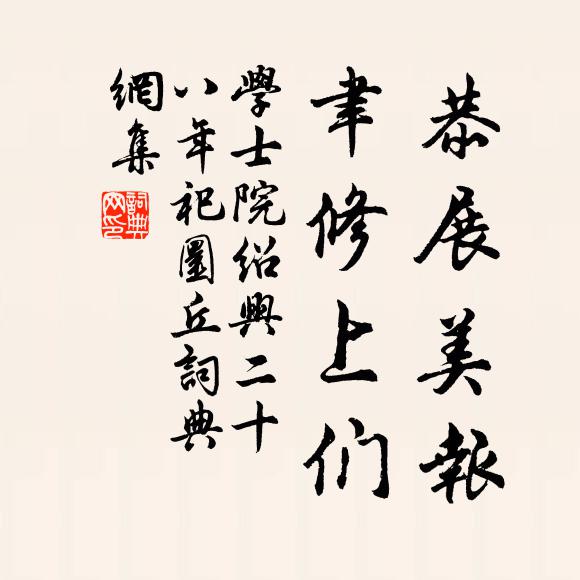 恭展美報
聿修上们
學士院紹興二十
八年祀圜丘詞典
網集
詞典
网印